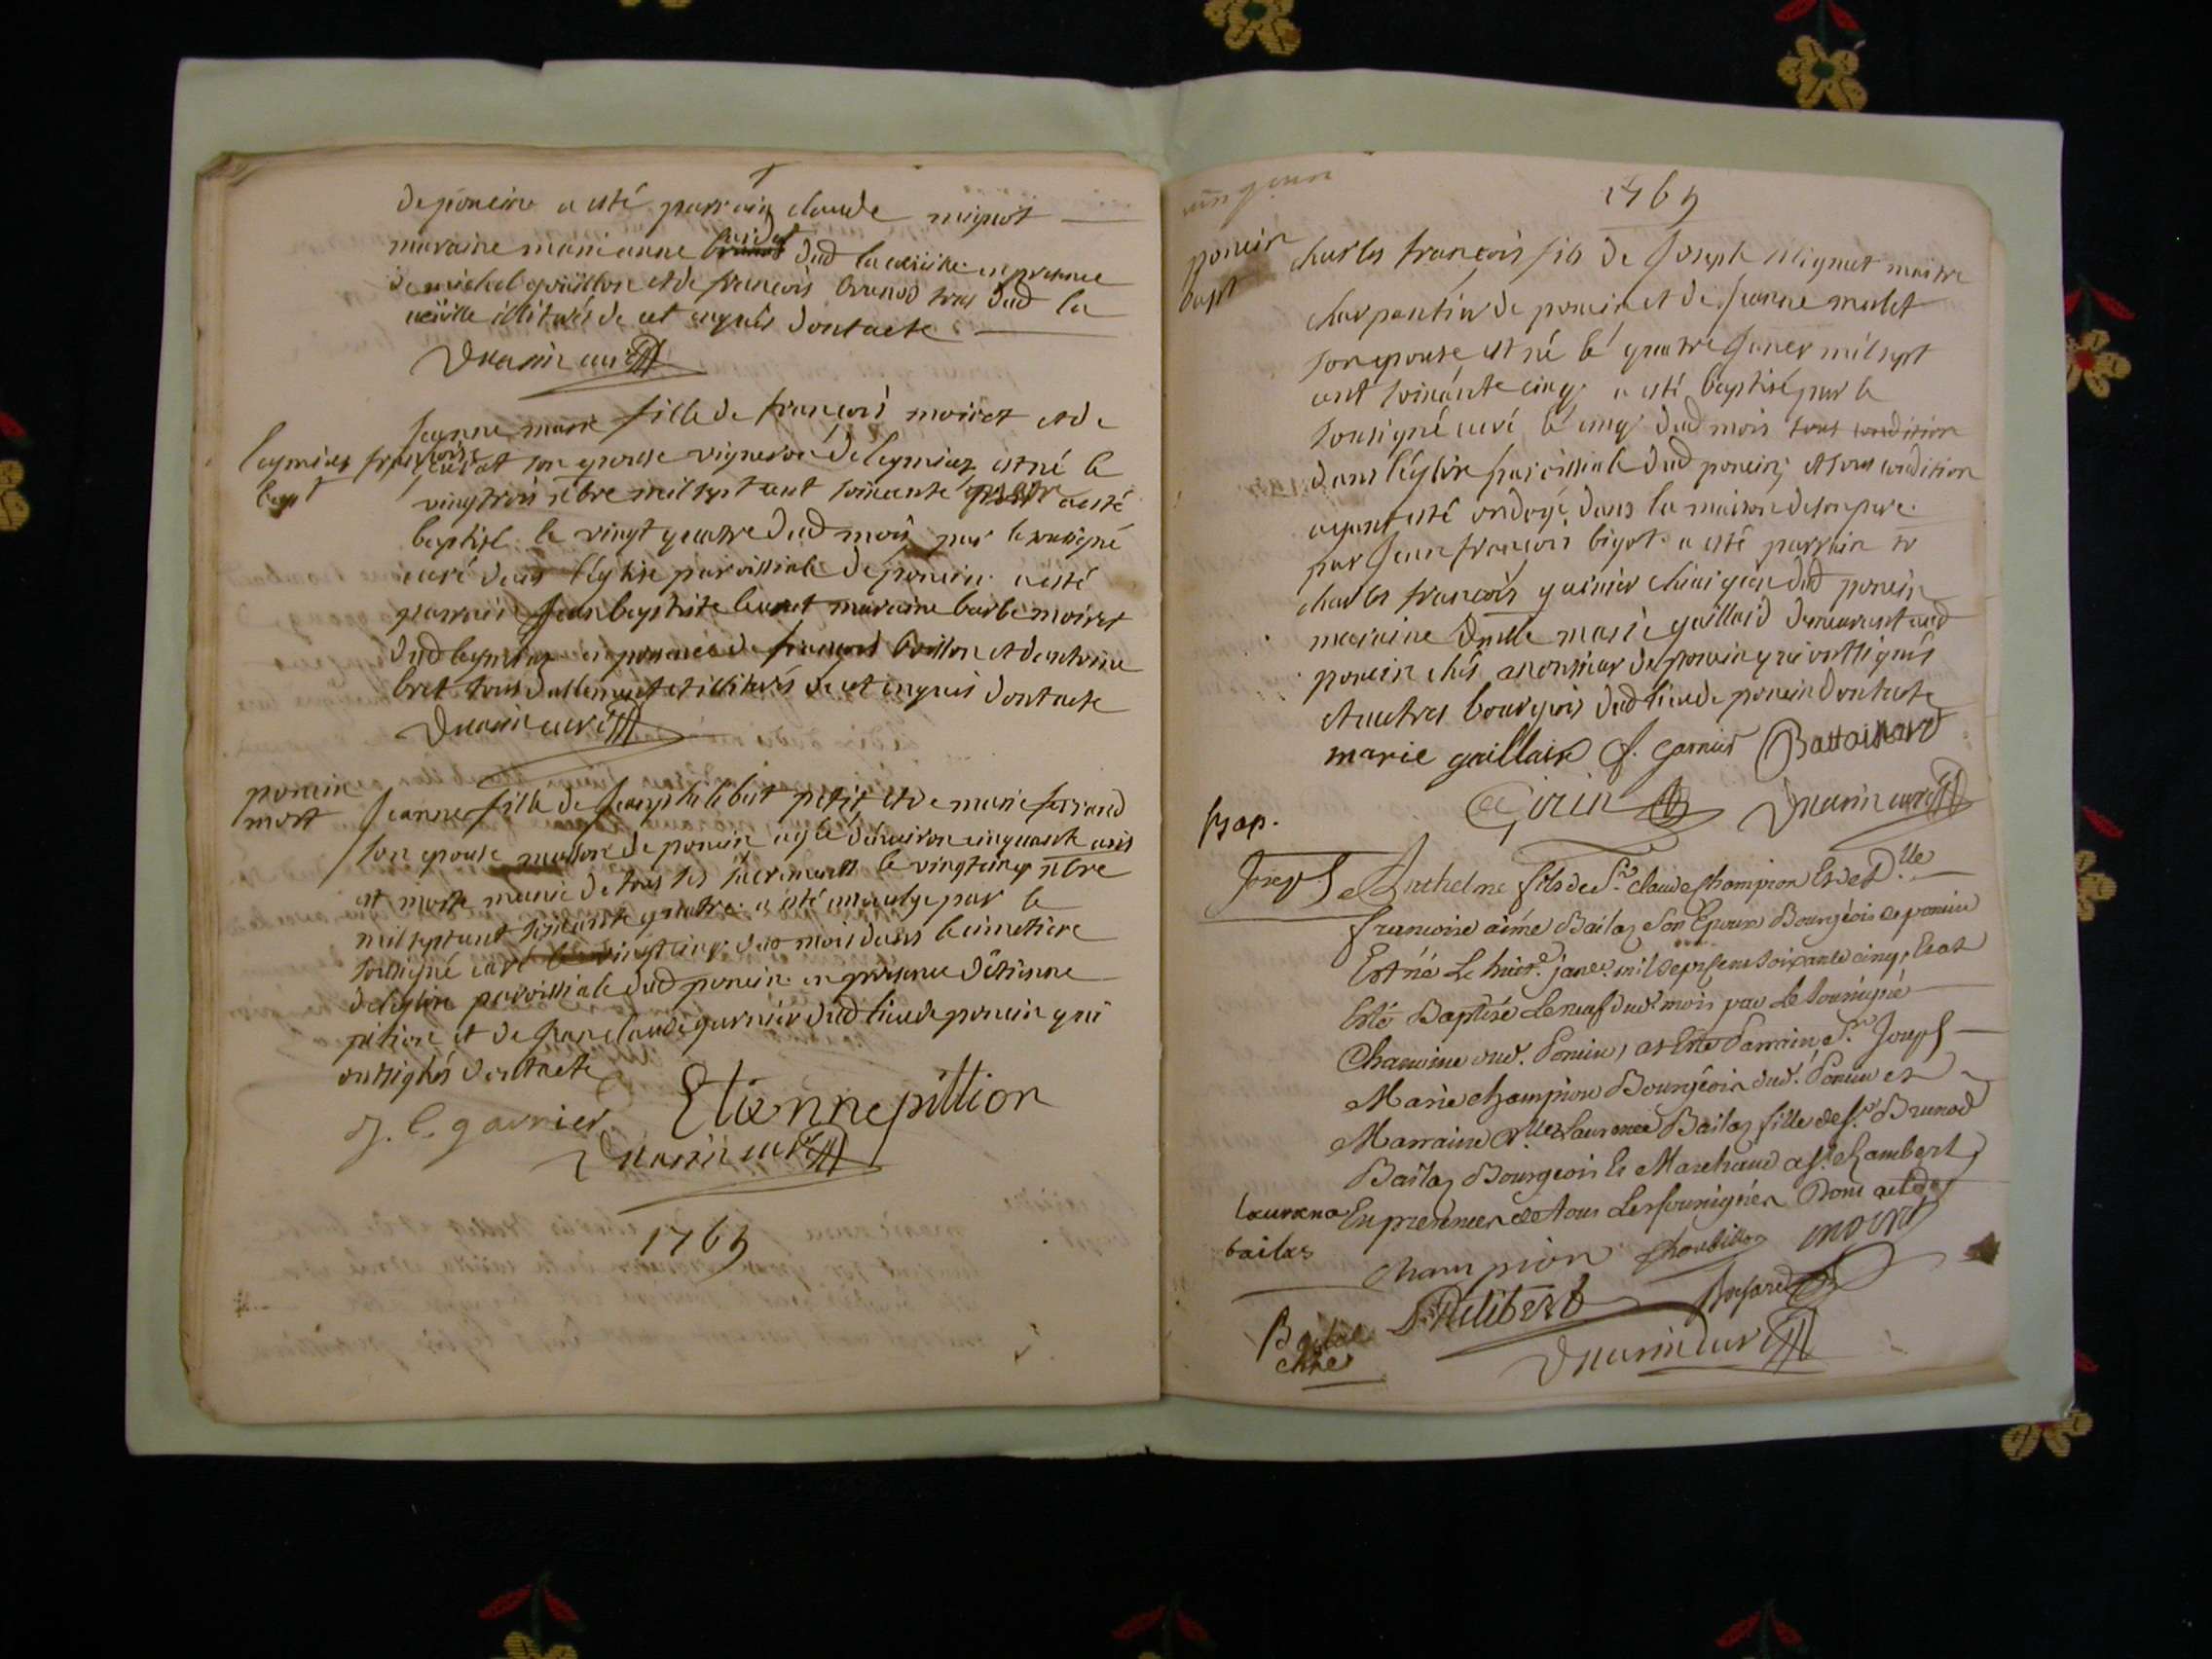 de poncin a esté parrain claude mignot
maraine marianne dud la en presence
de michel goüillon et de francois brunod tous dud la
illiterés de ce enquis dont acte
curé
jeanne marie fille de francois moiret et de
leymiat francoise son epouse vigneron de leymiat est né le
bapt
vingt trois xbre mil sept cent soixante quatre a esté
baptisé le vingt quatre dud mois par le soussigné
curé dans l'église paroissiale de poncin a esté
parrain jean baptiste maraine barbe moiret
dud leymiat en presence de francois et d'antoine
bret tous et illiterés de ce enquis dont acte
curé
poncin
mort
jeanne fille de petit et de marie ferrand
son epouse de poncin agée d'environ cinquante ans
est morte munie de tous les sacrements le vingt cinq xbre
mil sept cent soixante quatre a esté par le
soussigné curé le vingt cinq dud mois dans le cimetiere
de l'église paroissiale dud poncin en presence d'etienne
pition et de jean claude garnier dud lieu de poncin qui
ont signés dont acte
J. C. garnier Etienne pittion
curé
1765
1765
poncin
bapt
charles françois fils de Joseph mignot maitre
charpentier de poncin et de Jeanne
son epouse est né le quatre janvier mil sept
cent soixante cinq a esté baptisé par le
sousigné curé le cinq dud mois sous condition
dans l'église paroissiale dud poncin et sous condition
ayant esté ondoyé dans la maison de son pere
par Jean françois bigot a esté parrain sr
charles françois garnier chirurgien dud poncin
maraine Dmlle marie gaillard demeurant aud
poncin chés monsieur de poncin qui ont signés
et autres bourgois dud lieu de poncin dont acte
marie gaillard f. garnier Battaillard
Girin curé
Bap.
Joseph Anthelme fils de Sr. claude Champion Et de D.lle
francoise aimé Bailaz son Epouse Bourgeois de poncin
Est né Le huit. janer. mil Sept Cent soixante cinq, Et at
Esté Baptisé Le neuf dud. mois par Le Sousigné
Chanoine dud. Poncin, at Este Parrain Sr. Joseph
Marie Champion Bourgeois dud. Poncin et
Marraine D.lle Laurence Bailaz fille de Sr. Brunod
Bailaz Bourgeois Et Marchand a St. Rambert,
En presence de tous Les sousignés Dont acte
Laurence
bailas
Champion
Philibert
curé